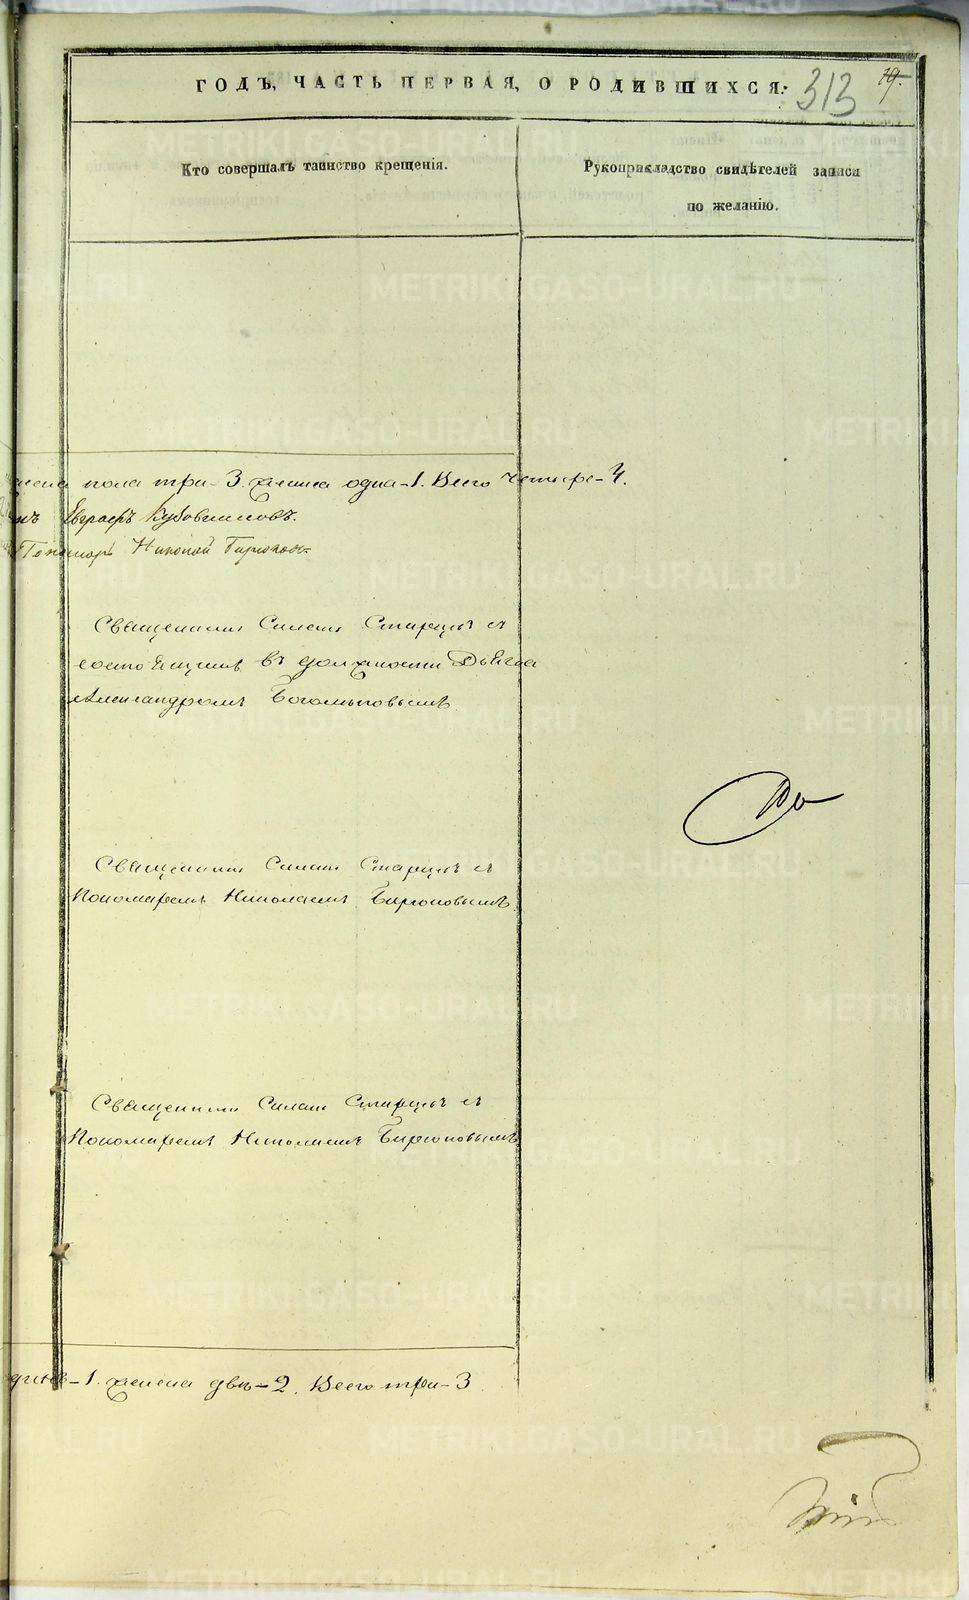 ГОДЪ, ЧАСТЬ ПЕРВАЯ, О РОДИВШИХСЯ:
313
19.
Кто совершалъ таинство крещенія.
Рукоприкладство свидѣтелей записи
по желанію.
пола три - 3. женска одна - 1. Всего четыре - 4.
Пономарь Николай Бирюковъ
Священникъ Симеонъ Старцевъ съ
состоящимъ въ должности Дьячка
Александромъ Богомоловымъ
Священникъ Симеонъ Старцевъ съ
Пономаремъ Николаемъ Бирюковымъ.
Священникъ Симеонъ Старцевъ съ
Пономаремъ Николаемъ Бирюковымъ
- 1. женска двѣ - 2. Всего три - 3
METRIKI.GASO-URAL.RU